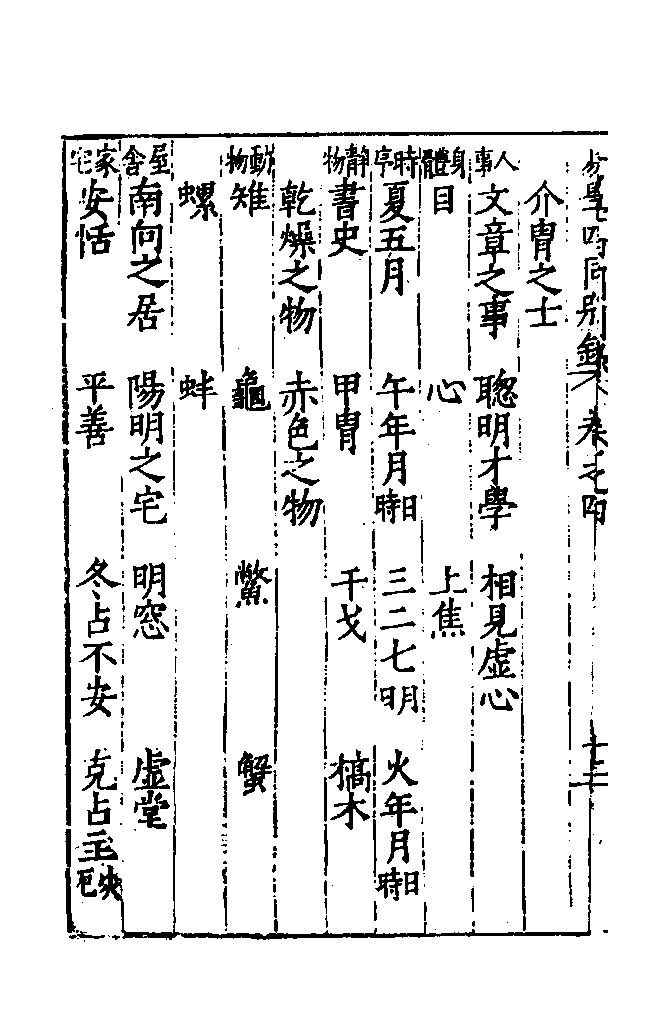 易學四同别錄 卷之四 十二
介胄之士
人事 文章之事 聰明才學 相見虛心
身體 目 心 上焦
時序 夏五月 午年月日時 三二七月日 火年月日時
靜物 書史 甲胄 干戈 槁木
乾燥之物 赤色之物
動物 雉 龜 鱉 蟹
螺 蚌
屋舍 南向之居 陽明之宅 明窓 虛堂
家宅 安恬 平善 冬占不安 克占主